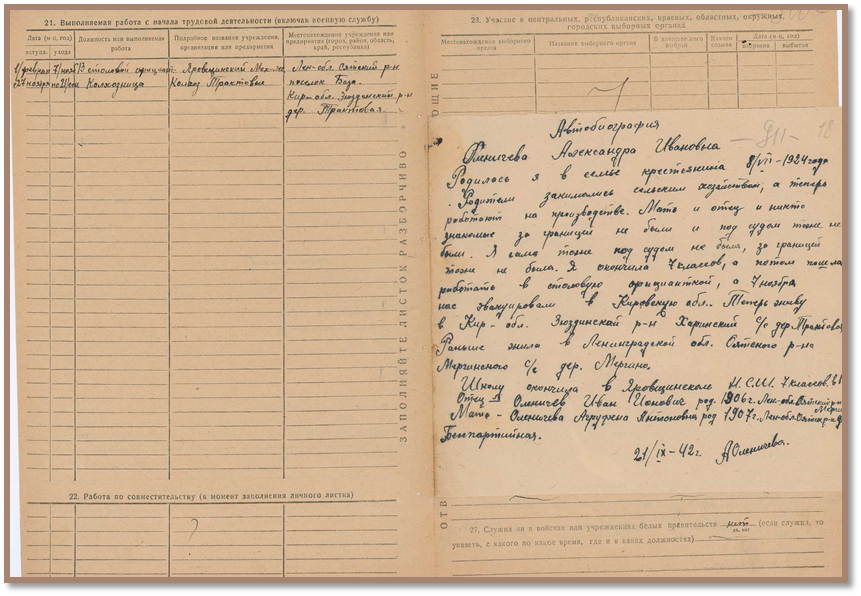 21. Выполняемая работа с начала трудовой деятельности (включая военную службу)
Дата (м-ц, год)
вступл.
ухода
Должность или выполняемая работа
Подробное название учреждения, организации или предприятия
Местонахождение учреждения или предприятия (город, район, область, край, республика)
В столовой официант.
Яровщинский
Лен-обл. Оятский р-н
поселок База.
27 ноября
Колхозница
Колхоз Трактовая
Кир-обл. Зюздинский р-н
дер. Трактовая.
ЗАПОЛНЯЙТЕ ЛИСТОК РАЗБОРЧИВО
22. Работа по совместительству (в момент заполнения личного листка)
23. Участие в центральных, республиканских, краевых, областных, окружных,
городских выборных органах
Местонахождение выборного органа
Название выборного органа
В качестве кого выбран
Дата (м-ц, год)
избрания
выбытия
ЮЩИЕ
Автобиография
Оленичева Александра Ивановна
Родилась я в семье крестьянина 8/VII-1924 года
Родители занимались сельским хозяйством, а теперь
работают на производстве. Мать и отец и никто
знакомые за границей не были и под судом тоже не
были. Я сама тоже под судом не была, за границей
тоже не была. Я окончила 7 классов, а потом пошла
работать в столовую официанткой, а 7 ноября
нас эвакуировали в Кировскую обл.. Теперь живу
в Кир-обл. Зюздинский р-н Харинский с/с дер. Трактовая
Раньше жила в Ленинградской обл. Оятского р-на
Мергинского с/с дер. Мергино.
Школу окончила в Яровщинской Н.С.Ш. 7 классов.
Отец - Оленичев Иван Ионович род. 1906г. Лен-обл. Оятский р-н
Мать - Оленичева Агруджна Антоновна род 1907г. Лен-обл. Оятск р-н
Беспартийная.
21/IX-42г. АОленичева.
ОТВ
27. Служил ли в войсках или учреждениях белых правительств нет (если служил, то
да, нет
указать, с какого по какое время, где и в каких должностях)